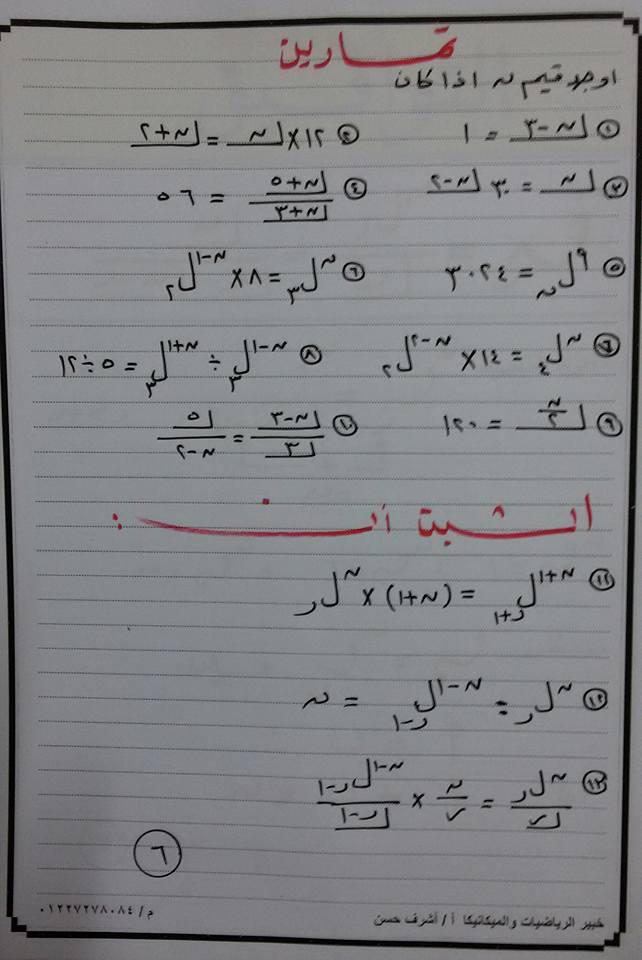 تمارين
اوجد قيم ن اذا كان
① |ن-٣ = ١ ③ ١٢×|ن = |ن+٢
② |ن = ٣٠ |ن-٢ ④ |ن+٥ / |ن+٣ = ٥٦
⑤ ⁹ل ن = ٣٠٢٤ ⑥ ⁿل٣ = ٨ × ن-١ل٢
⑦ نل٤ = ١٤ × ن-٢ل٢ ⑧ ن-١ل٣ ÷ ن+١ل٣ = ٥ ÷ ١٢
⑨ |ن/٢ = ١٢٠ ⑩ |ن-٣ / |٣ = |٥ / ن-٢
اثبت أن :
⑪ ن+١ل ر+١ = (ن+١) × نل ر
نل ر ÷ ن-١ل ر-١ = ن
نل ر / |ر = ن/ر × ن-١ل ر-١ / |ر-١
٦
خبير الرياضيات والميكانيكا أ / أشرف حسن م / ٠١٢٢٧٢٧٨٠٨٤